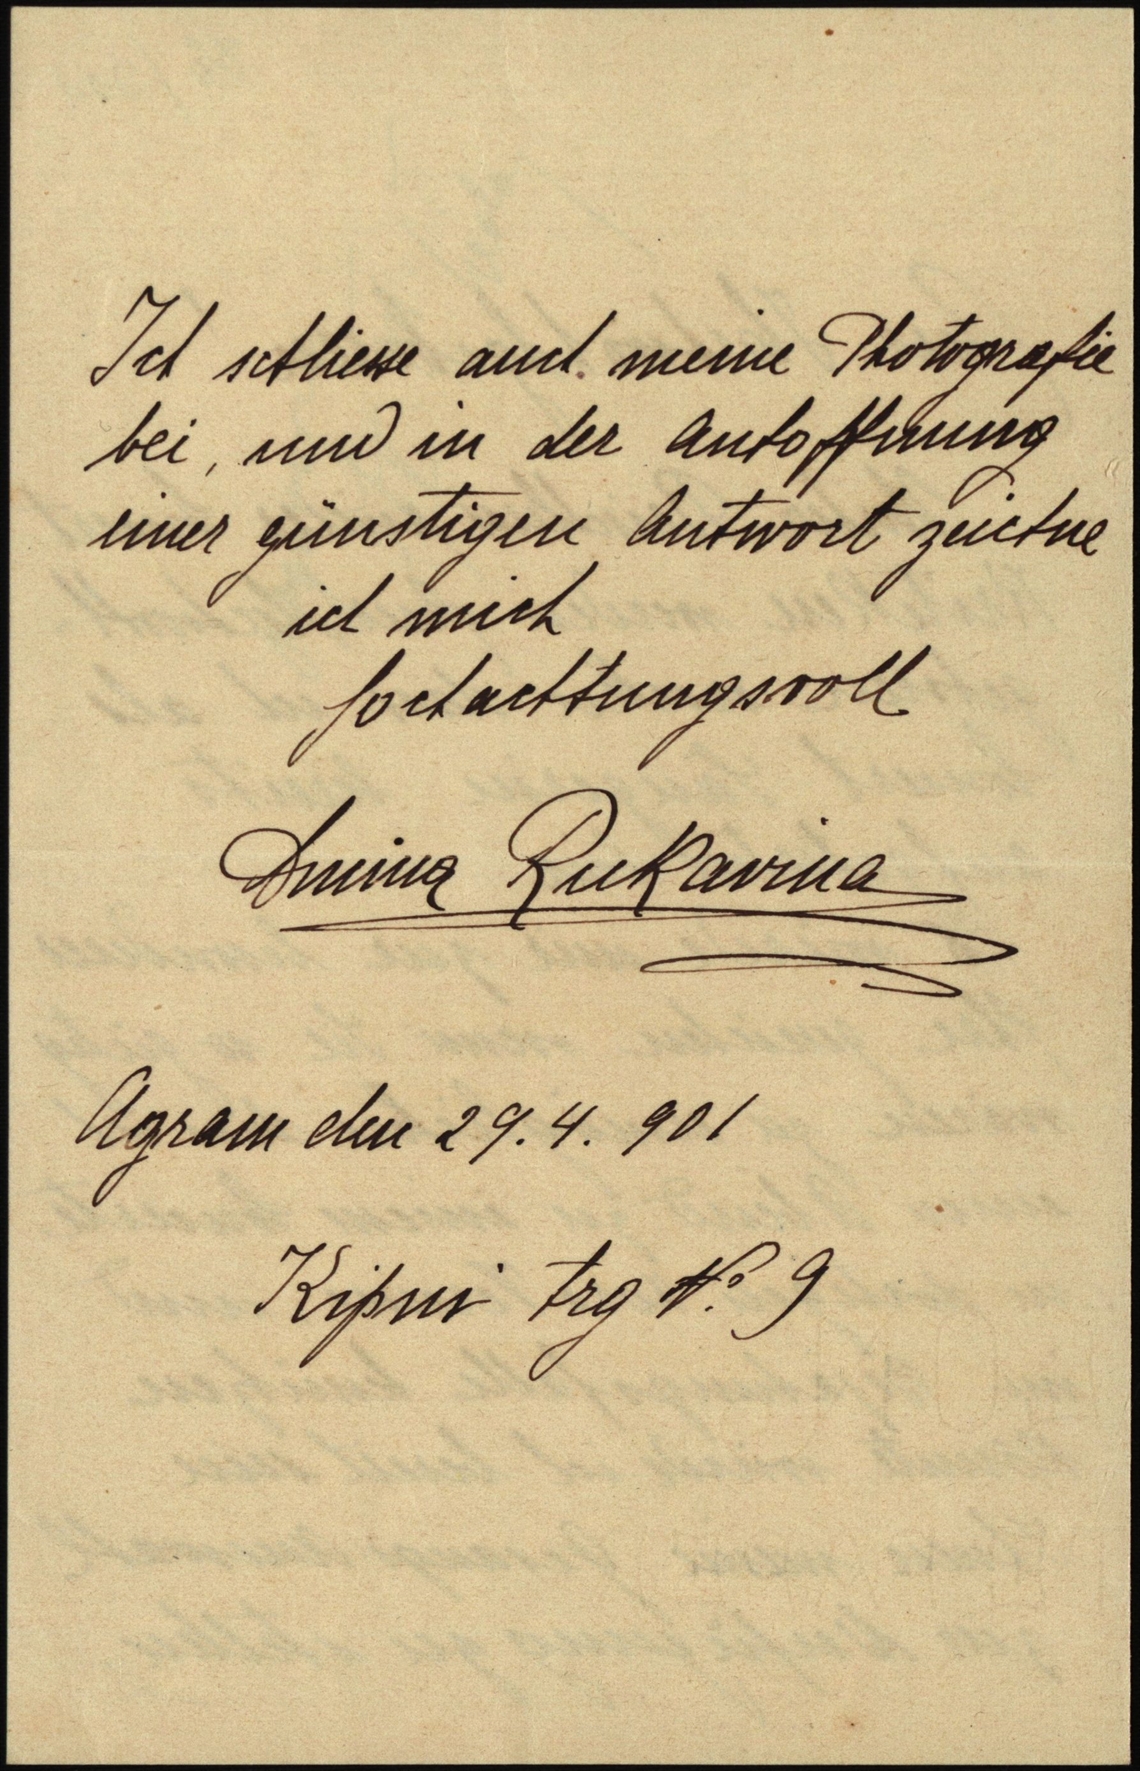 Ich schliesse auch meine Photografie
bei, und in der Anhoffnung
einer günstigen Antwort zeichne
ich mich
hochachtungsvoll
Rukavina
Agram den 29.4.901
Kipni trg No. 9